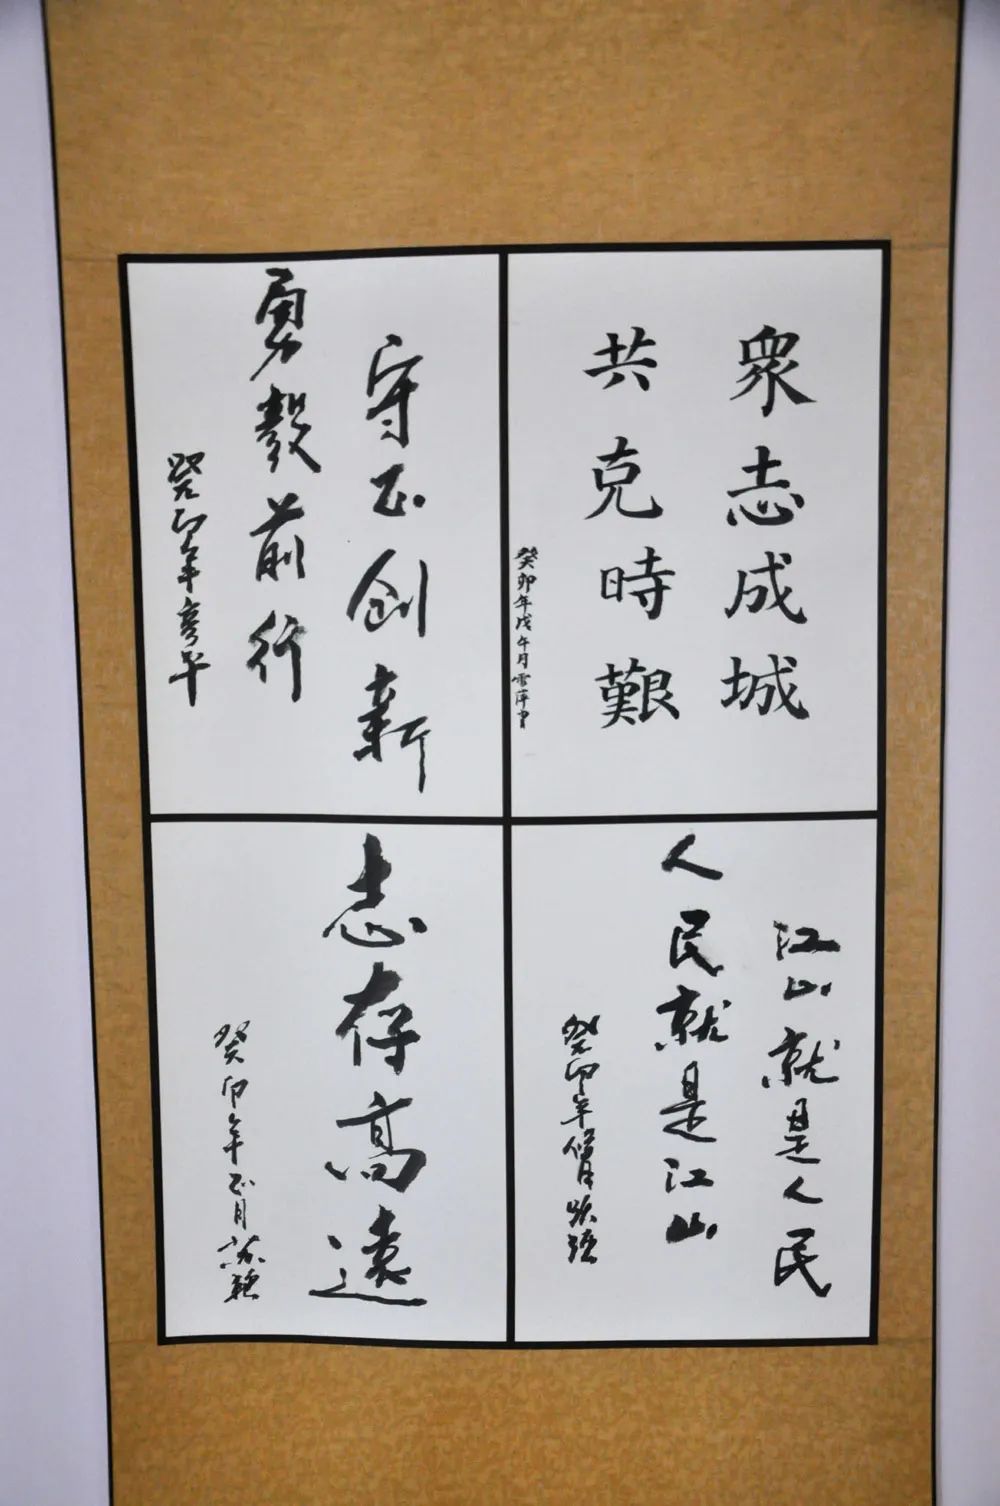 眾志成城
共克時艱
癸卯年戊午月雪萍書
守正创新
勇毅前行
癸卯年
江山就是人民
人民就是江山
癸卯年
志存高遠
癸卯年正月